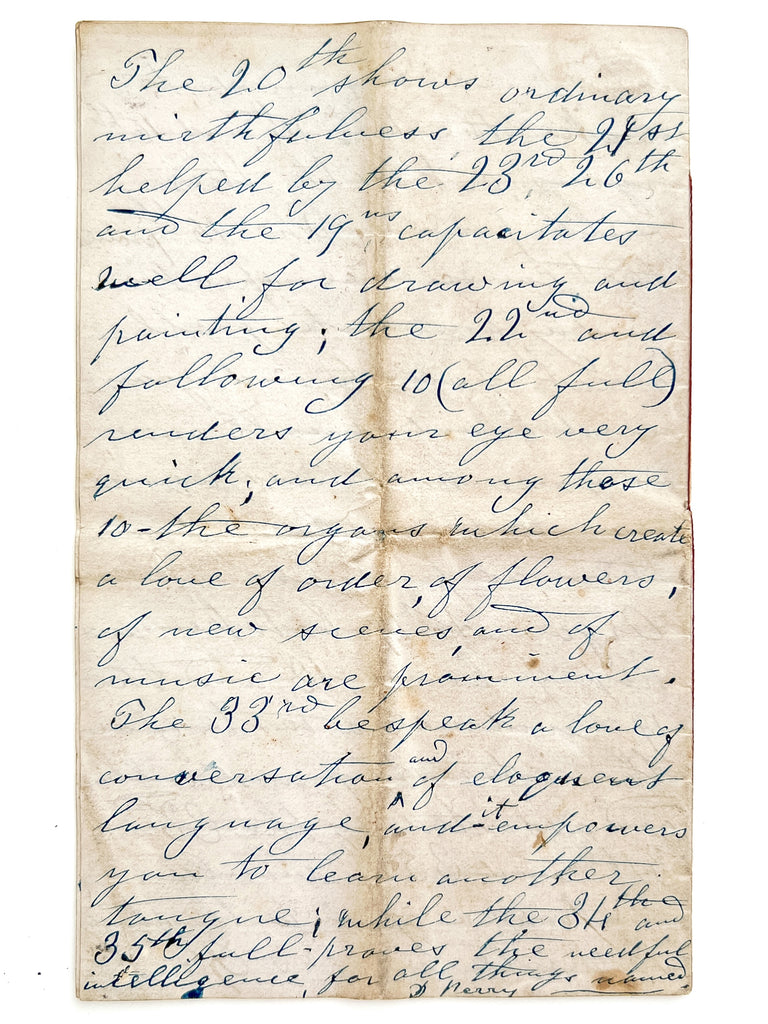 The 20th shows ordinary
mirthfulness, the 21st
helped by the 23rd 26th
and the 19ns capacitates
well for drawing and
painting; the 22nd and
following 10 (all full)
renders your eye very
quick; and among those
10-the organs which create
a love of order, of flowers,
of new scenes, and of
music are prominent.
The 33rd bespeak a love of
conversation and of eloquent
language, and-it empowers
you to learn another
tongue; while the 34th and
35th full-proves the needful
intelligence, for all things named.
D Perry